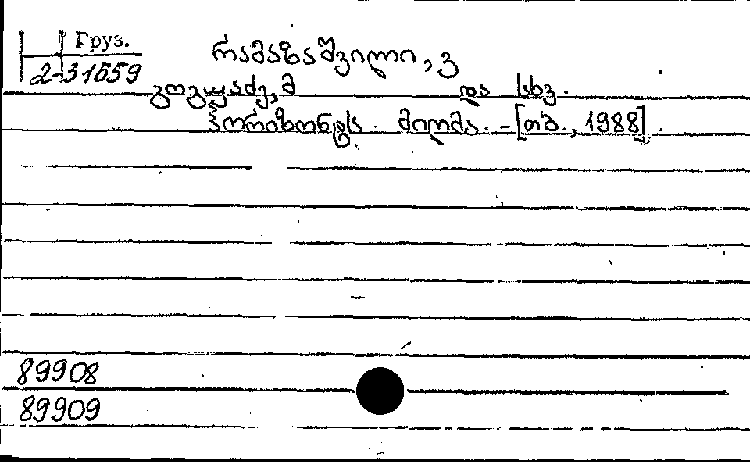 Груз.
2-31559
რამაზაშვილი, ვ
გოგუაძე, მ და სხვ.
ჰორიზონტს მიღმა. - [თბ., 1988].
89908
89909